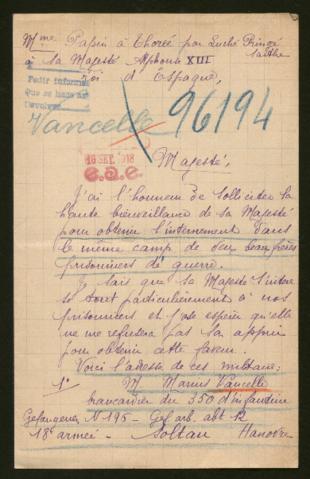 Mme Papin à Thorée par Luché Pringé
Sarthe
à Sa Majesté Alphonse XIII
Roi d'Espagne,
Pedir informes
Que se haga
Devolver
Vancelle
96194
16 SET. 1918
e.a.e.
Majesté,
J'ai l'honneur de solliciter la
haute bienveillance de sa Majesté
pour obtenir l'internement dans
le même camp de deux beaux frères
prisonniers de guerre.
Je sais que sa Majesté s'intére
se tout particulièrement à nos
prisonniers et j'ose espérer qu'elle
ne me refusera pas sa appui
pour obtenir cette faveur.
Voici l'adresse de ces militaires:
1° M. Marius Vancelle
brancardier du 350 d'infanterie
Gefangenen N 195 - Gef. arb. abt 12
18e armée - Soltau Hanovre